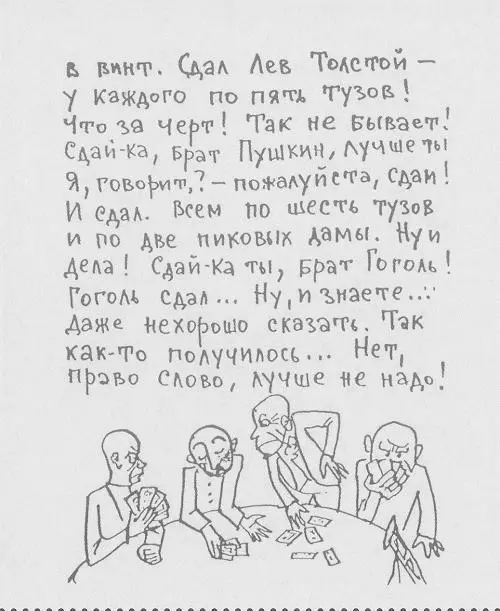 в винт. Сдал Лев Толстой —
у каждого по пять тузов!
Что за черт! Так не бывает!
Сдай-ка, брат Пушкин, лучше ты
Я, говорит,? — пожалуйста, сдам!
И сдал. Всем по шесть тузов
и по две пиковых дамы. Ну и
дела! Сдай-ка ты, брат Гоголь!
Гоголь сдал... Ну, и знаете...
Даже нехорошо сказать. Так
как-то получилось... Нет,
право слово, лучше не надо!